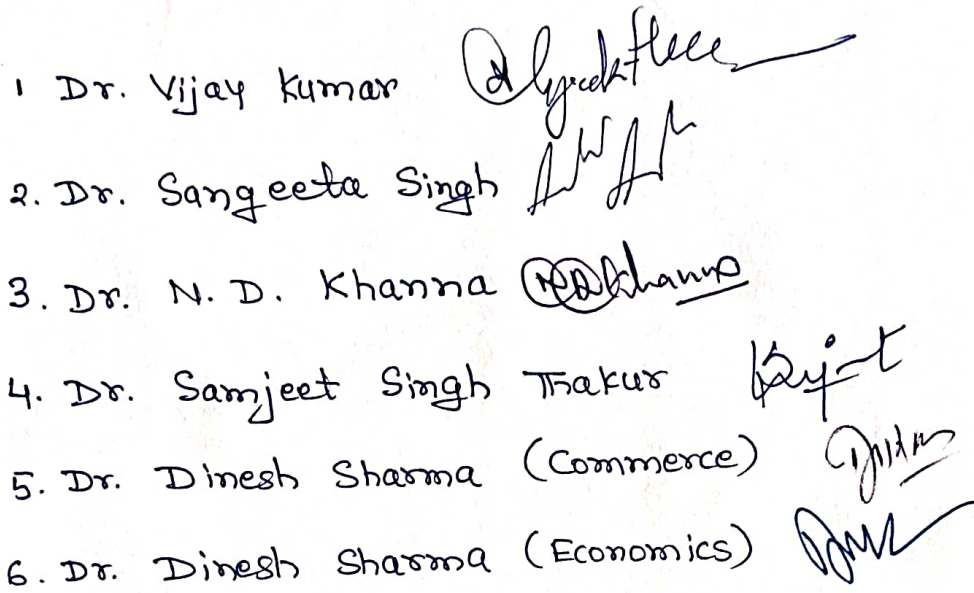 1 Dr. Vijay Kumar
2. Dr. Sangeeta Singh
3. Dr. N. D. Khanna
4. Dr. Samjeet Singh Thakur
5. Dr. Dinesh Sharma (Commerce)
6. Dr. Dinesh Sharma (Economics)